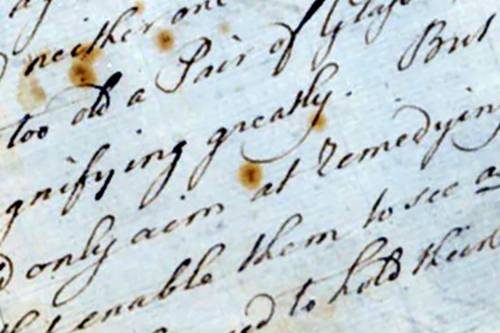 neither one
too old a Pair of Glass
gnifying greatly. But
only aim at remedying
enable them to see as
to hold their